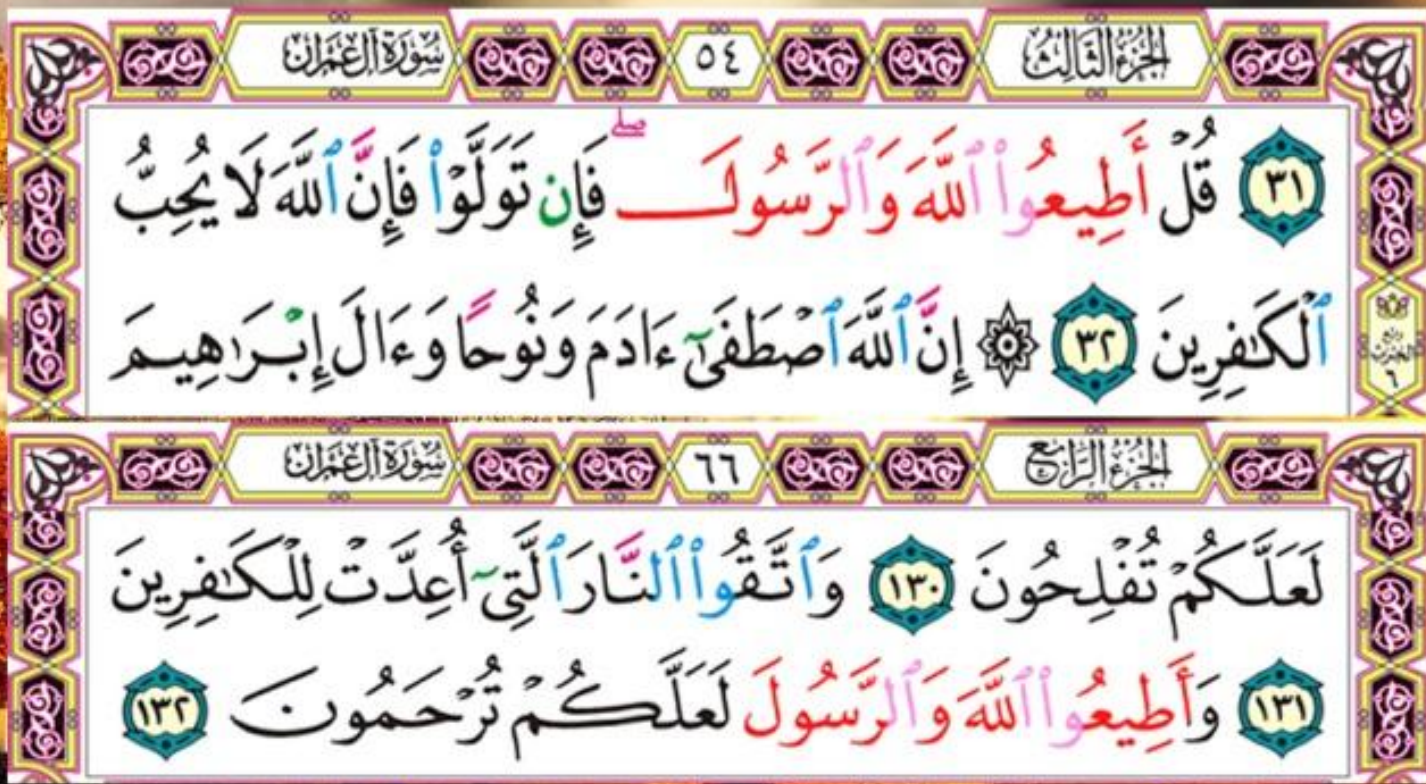 الجزء الثالث ٥٤ سورة آل عمران
٣١ قُلْ أَطِيعُوا۟ ٱللَّهَ وَٱلرَّسُولَ ۖ فَإِن تَوَلَّوْا۟ فَإِنَّ ٱللَّهَ لَا يُحِبُّ
ٱلْكَـٰفِرِينَ ٣٢ ۞ إِنَّ ٱللَّهَ ٱصْطَفَىٰٓ ءَادَمَ وَنُوحًا وَءَالَ إِبْرَٰهِيمَ
الجزء الرابع ٦٦ سورة آل عمران
لَعَلَّكُمْ تُفْلِحُونَ ١٣٠ وَٱتَّقُوا۟ ٱلنَّارَ ٱلَّتِىٓ أُعِدَّتْ لِلْكَـٰفِرِينَ
١٣١ وَأَطِيعُوا۟ ٱللَّهَ وَٱلرَّسُولَ لَعَلَّكُمْ تُرْحَمُونَ ١٣٢